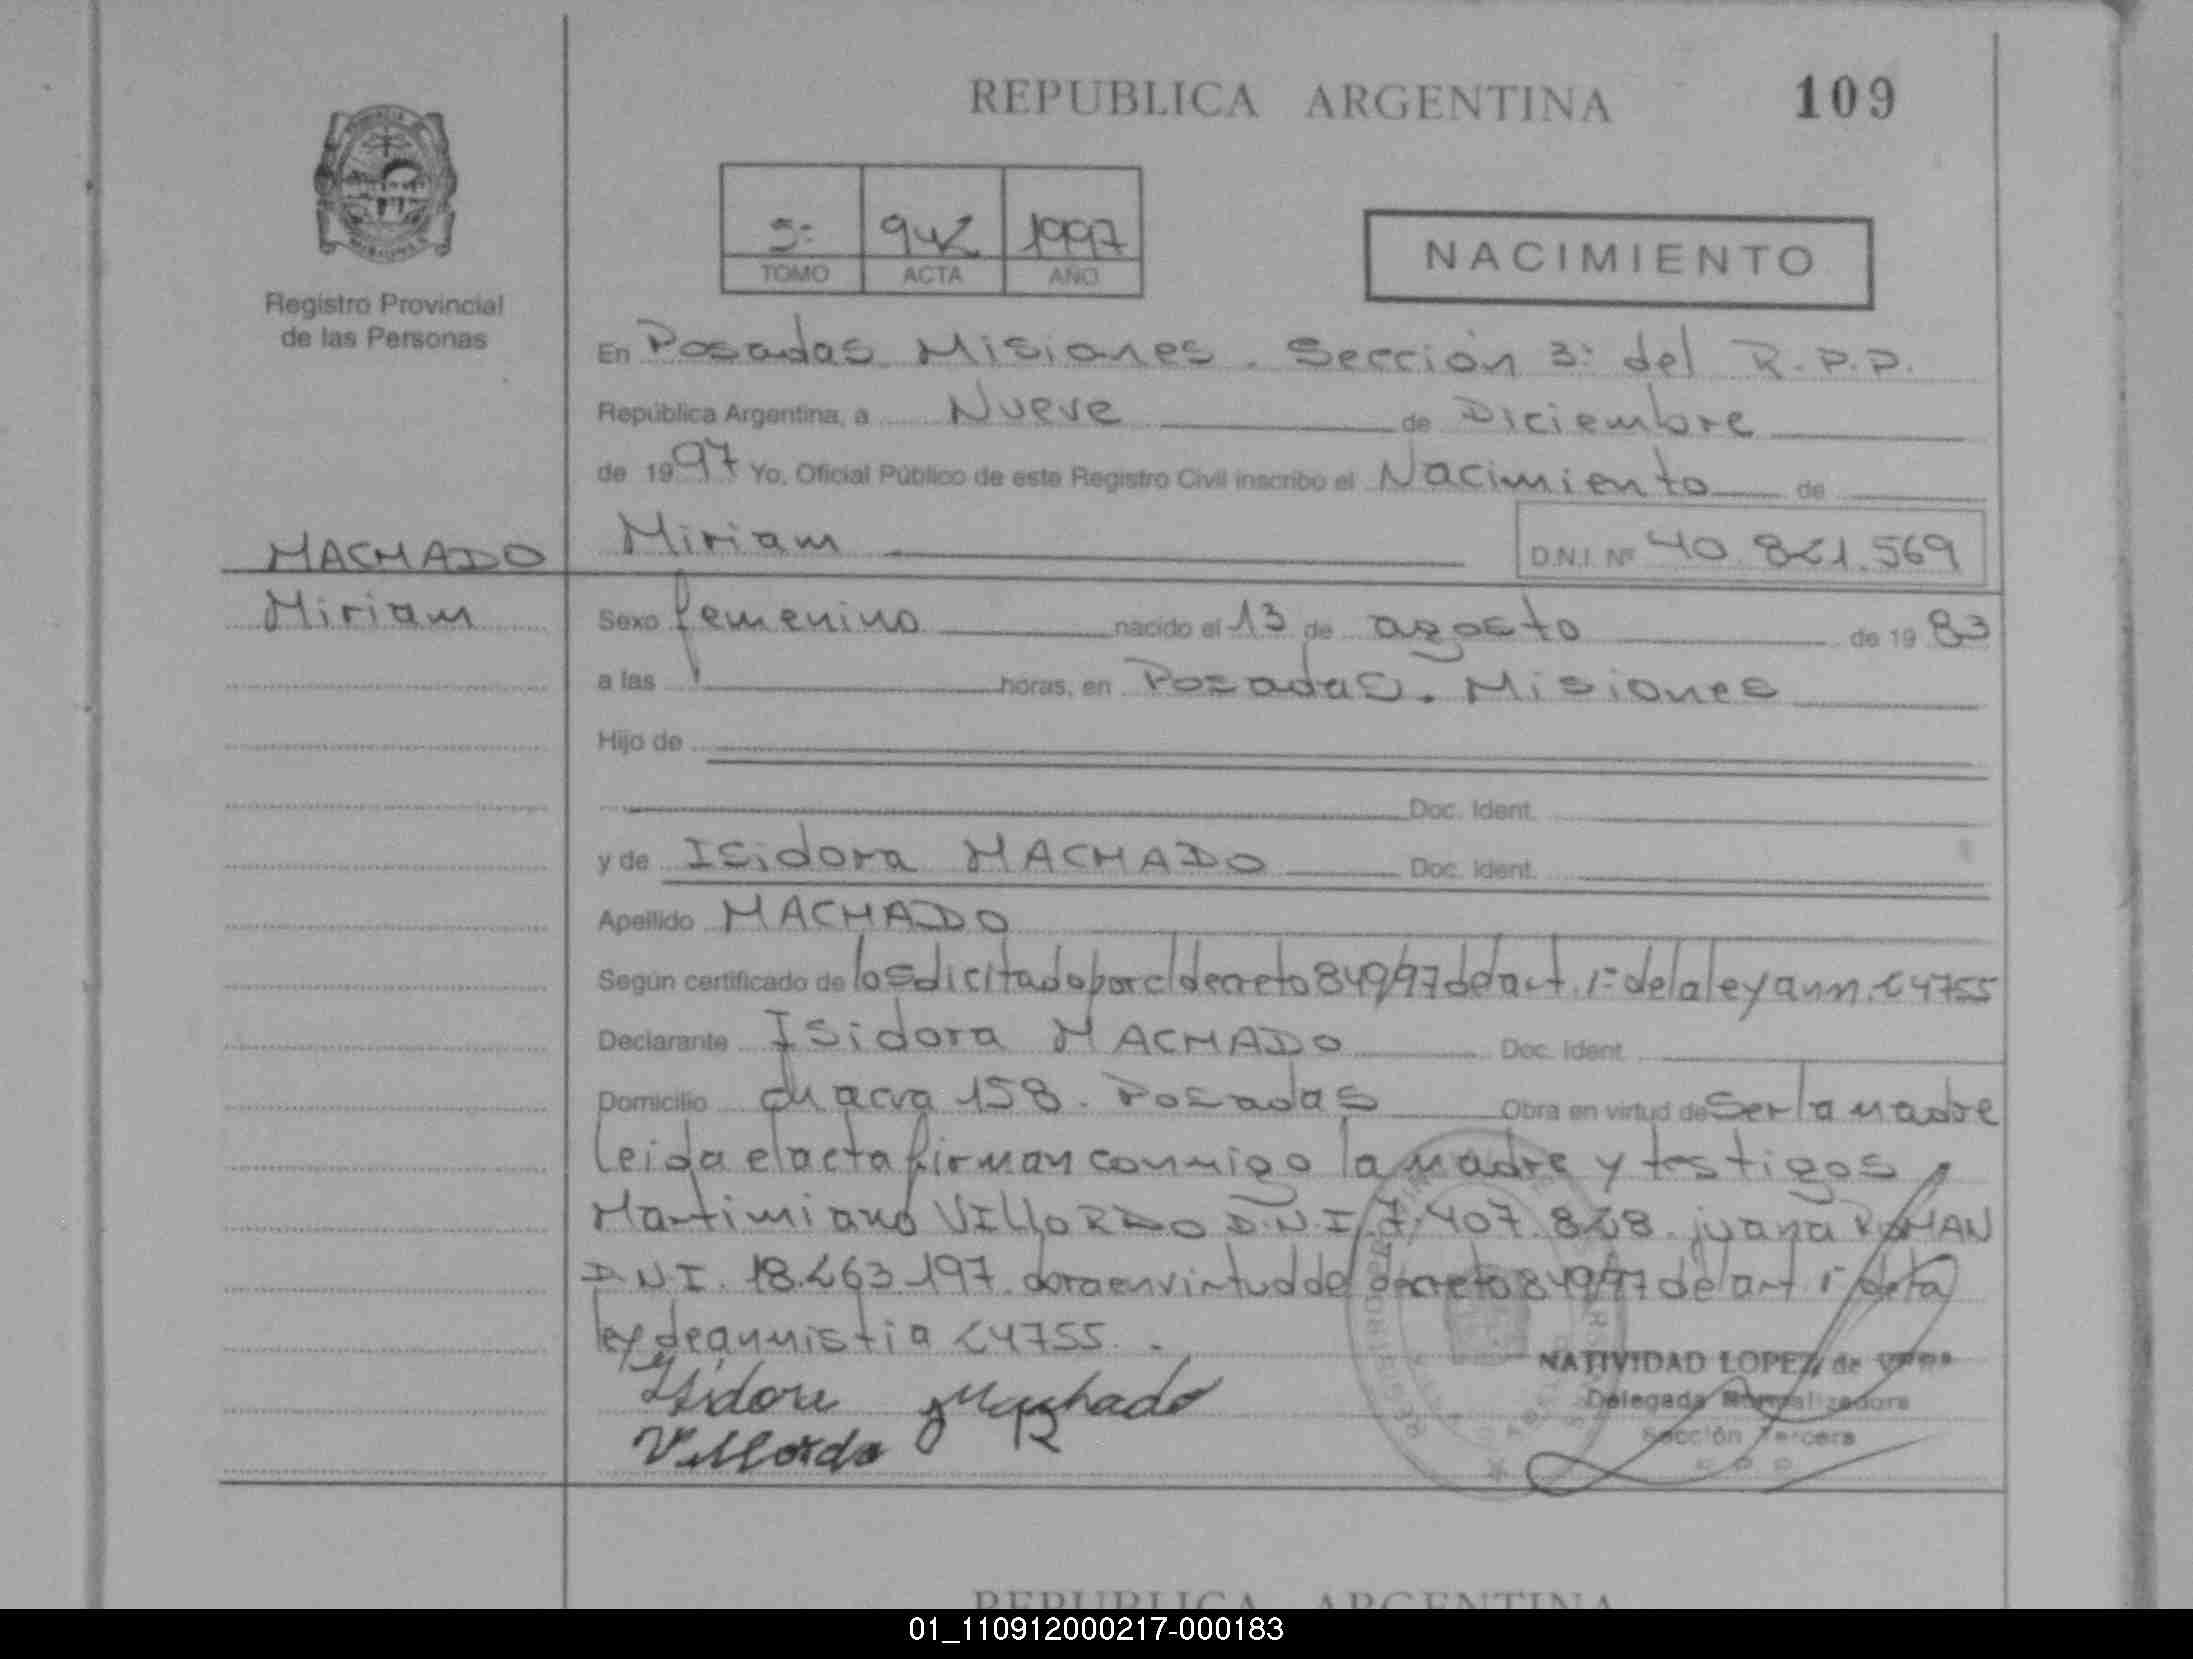 REPUBLICA ARGENTINA 109
Registro Provincial
de las Personas
5: 942 1997
TOMO ACTA AÑO
NACIMIENTO
En Posadas Misiones. Sección 3: del R.P.P.
República Argentina, a Nueve de Diciembre
de 1997 Yo, Oficial Público de este Registro Civil inscribo el Nacimiento de
MACHADO Miriam D.N.I. Nº 40.821.569
Miriam Sexo femenino nacido el 13 de agosto de 1983
a las horas, en Posadas. Misiones
Hijo de
Doc. Ident.
y de Isidora MACHADO Doc. Ident.
Apellido MACHADO
Según certificado de lo solicitado por el decreto 849/97 del art. 1= de la ley amn. 24755
Declarante Isidora MACHADO Doc. Ident.
Domicilio chacra 158. Posadas Obra en virtud de ser la madre
leida el acta firman conmigo la madre y testigos
Martimiano VILLORDO D.N.I. 7.407.828. juana ROMAN
D.N.I. 18.263.197. obra en virtud del decreto 849/97 del art. 1= de la
ley de amnistia 24755.
Isidora Machado
Villordo
NATIVIDAD LOPEZ de
Delegada Normalizadora
Sección Tercera
R. P. P.
REPUBLICA ARGENTINA
01_110912000217-000183